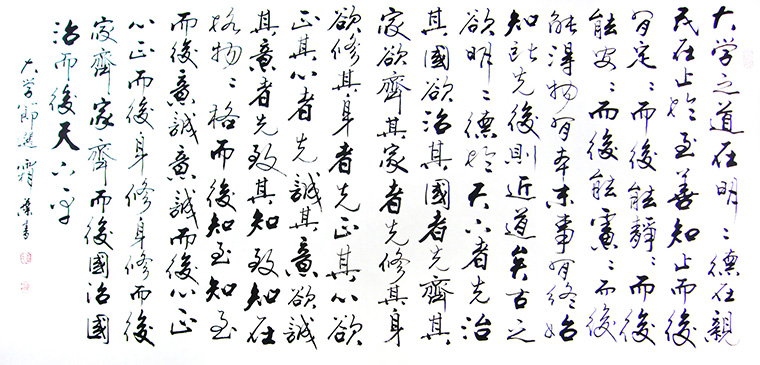 大学之道在明〻德在親
民在止於至善知止而後
有定〻而後能靜〻而後
能安〻而後能慮〻而後
能得物有本末事有終始
知所先後則近道矣古之
欲明〻德於天下者先治
其國欲治其國者先齊其
家欲齊其家者先修其身
欲修其身者先正其心欲
正其心者先誠其意欲誠
其意者先致其知致知在
格物〻格而後知至知至
而後意誠意誠而後心正
心正而後身修身修而後
家齊家齊而後國治國
治而後天下平
大学節選 書